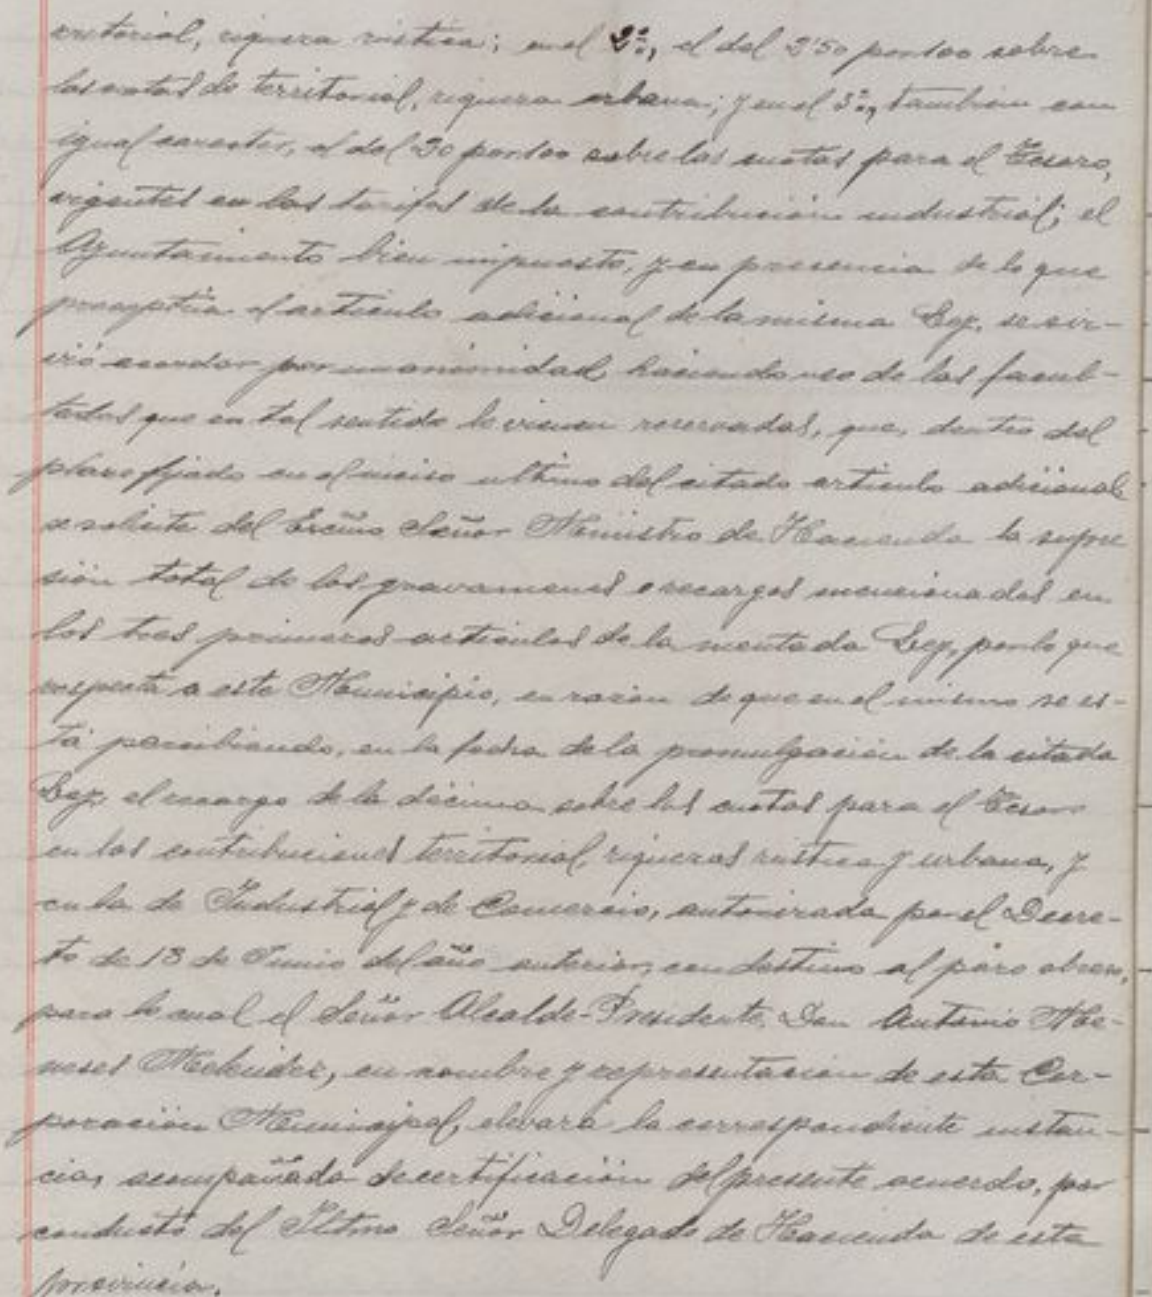 rritorial, riqueza rústica; en el 2º, el del 3'50 por 100 sobre
las cuotas de territorial, riqueza urbana; y en el 3º, también con
igual caracter, el del 20 por 100 sobre las cuotas para el Tesoro,
vigentes en las tarifas de la contribución industrial; el
Ayuntamiento bien impuesto, y en presencia de lo que
preceptúa el artículo adicional de la misma Ley, se sir-
vió acordar por unanimidad, haciendo uso de las facul-
tades que en tal sentido le vienen reservadas, que, dentro del
plazo fijado en el inciso ultimo del citado artículo adicional
se solicite del Excmo Señor Ministro de Hacienda la supre
sión total de los gravamenes o recargos mencionados en
los tres primeros artículos de la mentada Ley, por lo que
respecta a este Municipio, en razón de que en el mismo se es-
tá percibiendo, en la fecha de la promulgación de la citada
Ley, el recargo de la décima sobre las cuotas para el Tesoro
en las contribuciones territorial, riquezas rústica y urbana, y
en la de Industrial y de Comercio, autorizada por el Decre-
to de 18 de Junio del año anterior, con destino al paro obrero,
para lo cual el Señor Alcalde-Presidente, Don Antonio Me-
neses Melendez, en nombre y representación de esta Cor-
poración Municipal, elevará la correspondiente instan-
cia, acompañada de certificación del presente acuerdo, por
conducto del Iltmo Señor Delegado de Hacienda de esta
provincia.